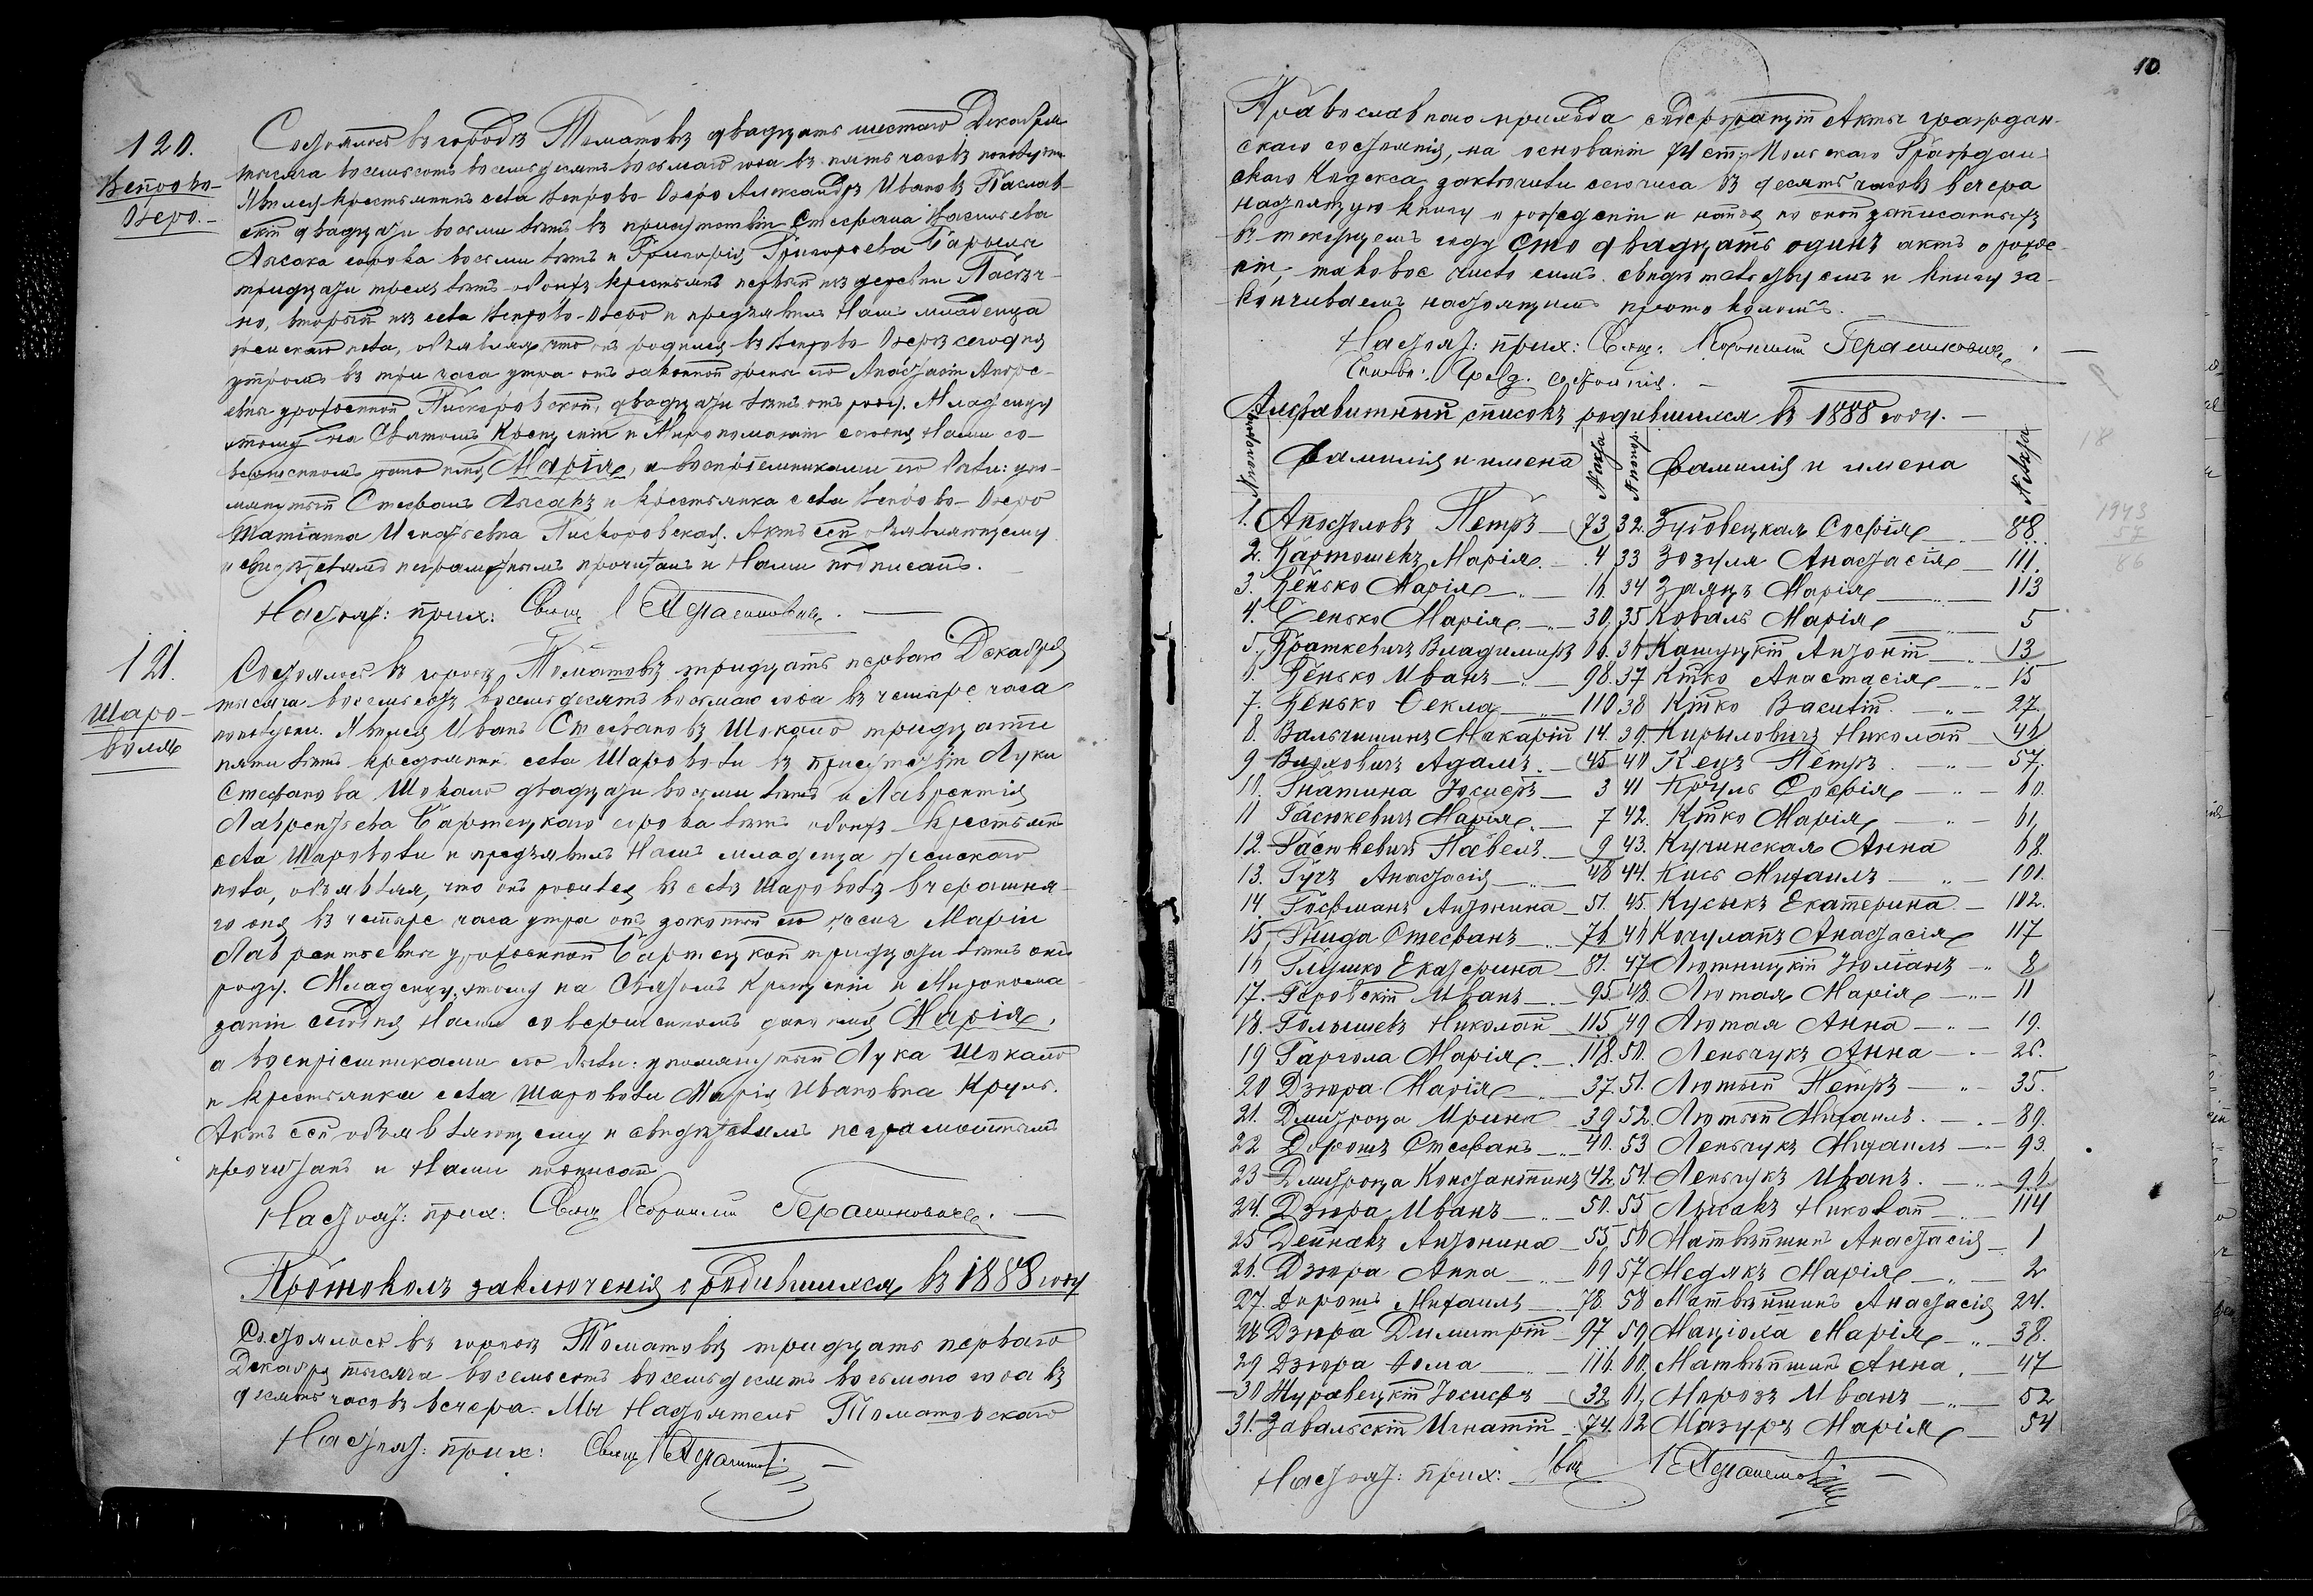 120.
Вепрово-
Озеро.-
Состоялось въ городѣ Томашовѣ двадцать шестаго Декабря
тысяча восемьсотъ восемьдесятъ восьмаго года въ пять часовъ пополудни
Явился крестьянинъ села Вепрово-Озеро Александръ Ивановъ
двадцати восьми лѣтъ въ присутствіи Стефана Васильева
Лысака сорока восьми лѣтъ и Григорія Григорьева
тридцати трехъ лѣтъ обоихъ крестьянъ первый изъ деревни Пасѣч-
но, вторый изъ села Вепрово-Озеро и предъявилъ Намъ младенца
женскаго пола, объявляя что онъ родился въ Вепрово-Озерѣ сегодня
утромъ въ три часа утра отъ законной жены его Анастасіи Андре-
евны урожденной Пискоровской, двадцати лѣтъ отъ роду. Младенцу
этому на Святомъ Крещеніи и Миропомазаніи сегодня Нами со-
вершенномъ дано имя Марія, а воспріемниками его были: упо-
мянутый Стефанъ Лысакъ и крестьянка села Вепрово-Озеро
Татіанна Игнатьевна Пискоровская. Актъ сей объявляющему
и свидѣтелямъ неграмотнымъ прочитанъ и Нами подписанъ.
Настоят: прих: Свящ К Герашкевичъ.
121.
Шаро-
воля
Состоялось въ городѣ Томашовѣ тридцать перваго Декабря
тысяча восемьсотъ восемьдесятъ восьмаго года въ четыре часа
пополудни. Явился Иванъ Стефановъ Шокало тридцати
пяти лѣтъ крестьянинъ села Шароволи въ присутствіи Луки
Стефанова Шокало двадцати восьми лѣтъ и Лаврентія
Лаврентьева Бартецкаго сорока лѣтъ обоихъ крестьянъ
села Шароволи и предъявилъ Намъ младенца женскаго
пола, объявляя, что онъ родился въ селѣ Шароволѣ вчерашня-
го дня въ четыре часа утра отъ законной его жены Маріи
Лаврентьевны урожденной Бартецкой тридцати лѣтъ отъ
роду. Младенцу этому на Святомъ Крещеніи и Миропома-
заніи сегодня Нами совершенномъ дано имя Марія,
а воспріемниками его были: упомянутый Лука Шокало
и крестьянка села Шароволи Марія Ивановна Круль.
Актъ сей объявляющему и свидѣтелямъ неграмотнымъ
прочитанъ и Нами подписанъ
Настоят: прих: Свящ Корнилій Герашкевичъ.
Протоколъ заключенія о родившихся въ 1888 году
Состоялось въ городѣ Томашовѣ тридцать перваго
Декабря тысяча восемьсотъ восемьдесятъ восьмаго года въ
десять часовъ вечера. Мы Настоятель Томашовскаго
Настоят: прих: Свящ К
10.
Православнаго прихода содержащій Акты граждан-
скаго состоянія, на основаніи 74 ст. Польскаго Граждан-
скаго Кодекса заключили сего числа въ десять часовъ вечера
настоящую книгу о рожденіи и найдя по оной записанныхъ
въ текущемъ году сто двадцать одинъ актъ о рожде-
ніи, таковое число симъ свидѣтельствуемъ и книгу за-
канчиваемъ настоящимъ протоколомъ.
Настоят: прих: Свящ: Корнилій Герашкевичъ.
Чин: Гражд. состоянія.
Алфавитный списокъ родившихся въ 1888 году.
Фамилія и имена № Акта Фамилія и имена № Акта
1. Апостоловъ Петръ 73 32. Зубовецкая Софія 88.
2. Бартошекъ Марія 4 33 Зозуля Анастасія 111.
3. Бенько Марія 16 34 Заяцъ Марія 113
4. Сенько Марія 30. 35 Коваль Марія 5
5. Браткевичъ Владимиръ 66. 36 Кашуцкій Антоній 13
6. Бенько Иванъ 98. 37 Кітко Анастасія 15
7. Бенько Ѳекла 110 38 Кітко Василій 27.
8. Вальчишинъ Макарій 14. 39. Кириловичъ Николай 46
9 Видловичъ Адамъ 45 40 Кецъ Петръ 57.
10. Гнатина Іосифъ 3 41 Круль Софія 60.
11 Гасюкевичъ Марія 7 42. Кітко Марія 61
12. Гасюкевичъ Павелъ 9 43. Кучинская Анна 68.
13. Гучъ Анастасія 48 44. Кись Михаилъ 101.
14. Гофманъ Антонина 51. 45. Кусыкъ Екатерина 102.
15 Гнида Стефанъ 76 46 Кочулапъ Анастасія 117
16 Глушко Екатерина 81. 47 Лютницкій Юліанъ 8
17. Геровскій Иванъ 95 48. Лютая Марія 11
18. Голышевъ Николай 115 49 Лютая Анна 19.
19 Гаргола Марія 118. 50. Леньчукъ Анна 26.
20 Дзюра Марія 37. 51. Лютый Петръ 35.
21. Дмитроца Ирина 39 52. Лютый Михаилъ 89.
22 Дорошъ Стефанъ 40. 53 Леньчукъ Михаилъ 93.
23 Дмитроца Константинъ 42 54. Леньчукъ Иванъ 96.
24. Дзюра Иванъ 50. 55 Лысакъ Николай 114
25 Дейнекъ Антонина 55 56 Матвѣйшинъ Анастасія 1
26. Дзюра Анна 69 57 Медякъ Марія 2
27. Дорошъ Михаилъ 78. 58 Матвѣйшинъ Анастасія 24.
28 Дзюра Димитрій 97 59 Мацюла Марія 38.
29 Дзюра Ѳома 116. 60. Матвѣйшинъ Анна 47
30 Журавецкій Іосифъ 32 61. Морозъ Иванъ 52
31. Завальскій Игнатій 74. 62 Мазуръ Марія 54
Настоят: прих: Свящ К